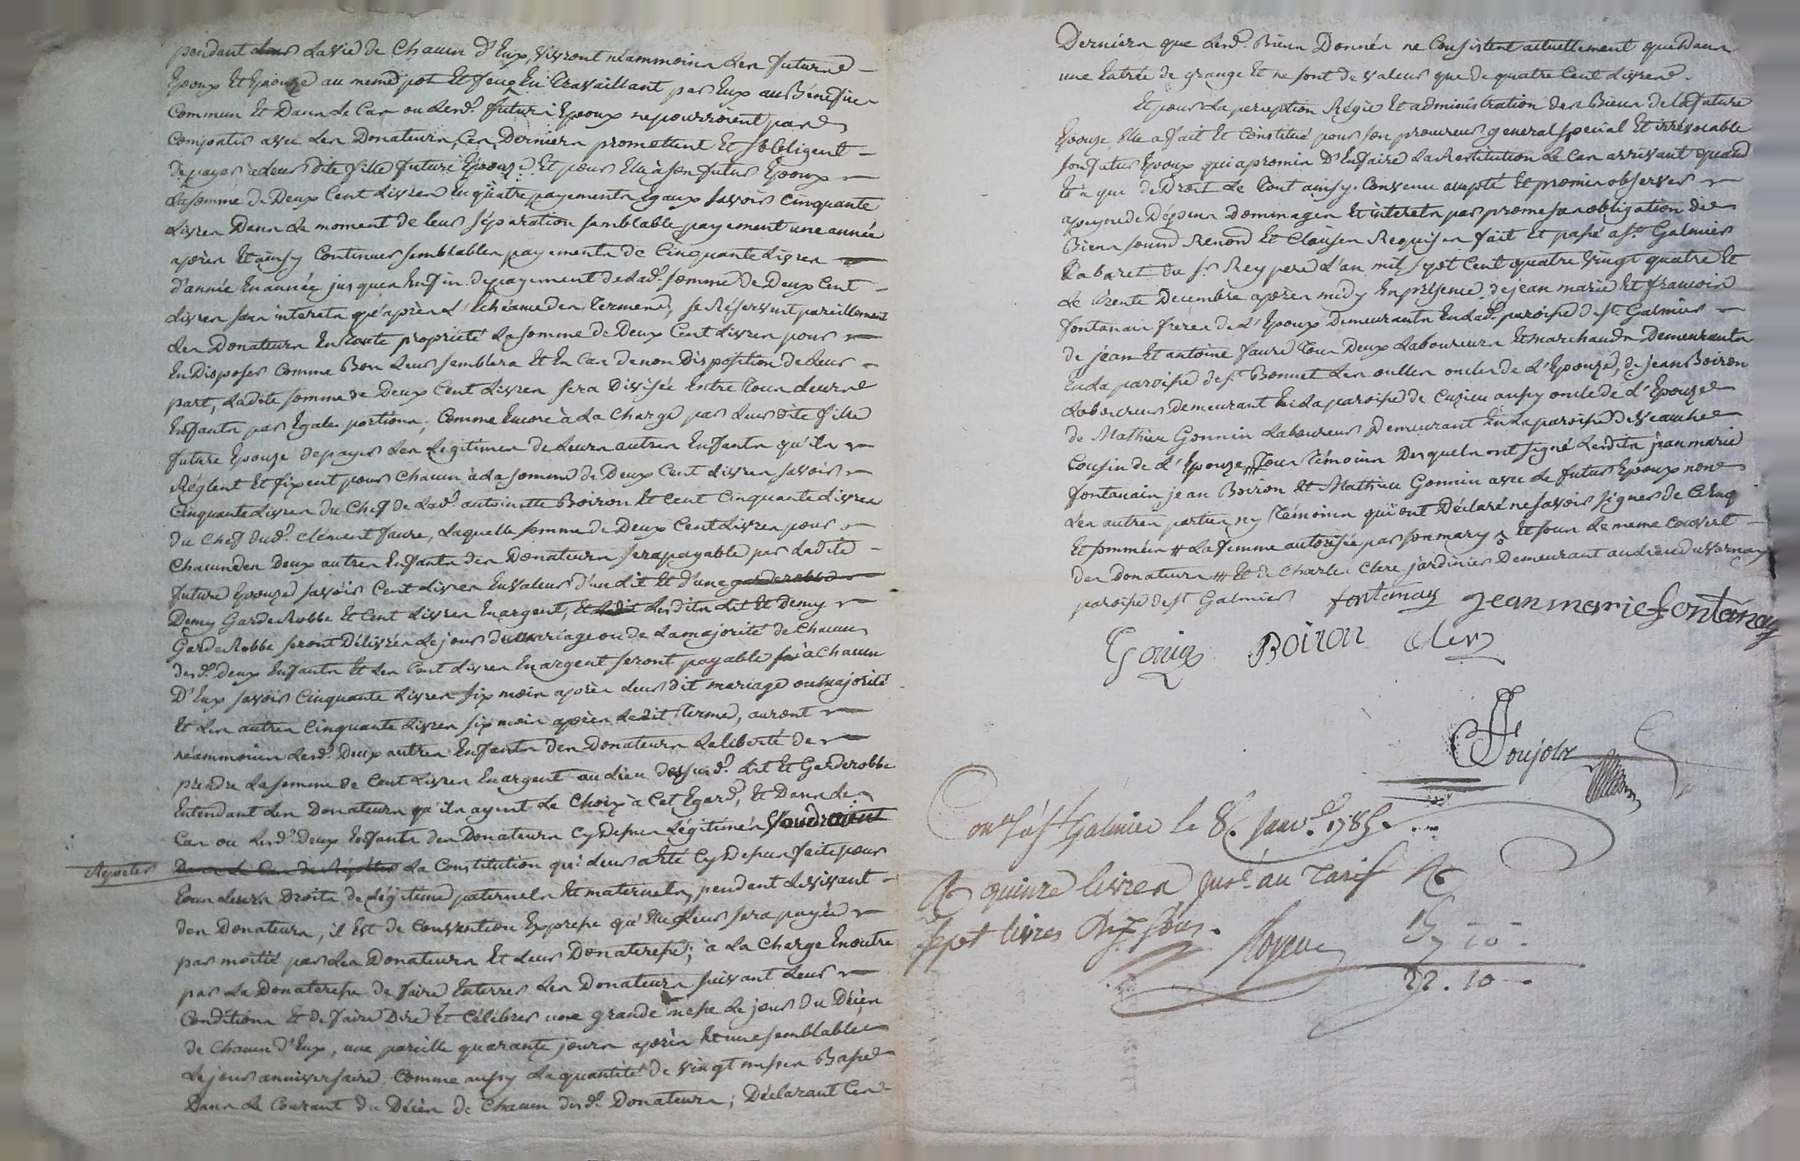 pendant la vie de Chacun d'Eux, vivront néammoins les futurs
Epoux Et Epouze au meme pot Et feu En travaillant par Eux au Bénéfice
Commun Et Dans Le Cas ou Lesd. futurs Epoux ne pourroient pas
Compatir avec les Donateurs, Ces Derniers promettent Et s'obligent
de payer à leur dite fille future Epouze Et pour Elle à son futur Epoux
La somme de Deux Cent Livres En quatre payements Egaux savoir Cinquante
Livres Dans Le moment de leur séparation semblable payement une année
après Et ainsy Continuer semblables payements de Cinquante Livres
d'année En année jusques Enfin de payement de Lad. somme de Deux Cent
Livres sans interets qu'après L'Echéance des termes; se Réservent pareillement
Les Donateurs En toute propriété La somme de Deux Cent Livres pour
En Disposer Comme Bon Leur semblera Et En Cas de non Disposition de leur
part, Ladite somme de Deux Cent Livres sera Divisée Entre tous Leurs
Enfants par Egales portions, Comme Encore à La Charge par Leur dite fille
future Epouze de payer Les Légitimes de Leurs autres Enfants qu'ils
Réglent Et fixent pour Chacun à La somme de Deux Cent Livres savoir
Cinquante Livres du Chef de Lad. antoinette Boiron Et Cent Cinquante Livres
du Chef dud. Clément faure, Laquelle somme de Deux Cent Livres pour
Chacun des Deux autres Enfants des Donateurs sera payable par Ladite
future Epouze savoir Cent Livres En valeur d'un Lit Et d'une garderobbe
Demy GardeRobbe Et Cent Livres En argent, Et Ledit Lesdits Lit Et Demy
GardeRobbe seront Délivrés Le jour du mariage ou de La majorité de Chacun
desd. deux Enfants Et Les Cent Livres En argent seront payable à Chacun
D'Eux savoir Cinquante Livres six mois après Leur dit mariage ou majorité
Et Les autres Cinquante Livres six mois après Ledit terme, auront
néammoins Lesd. Deux autres Enfants des Donateurs La liberté de
prendre La somme de Cent Livres En argent au Lieu desusd. Lit Et Garderobbe
Entendant Les Donateurs qu'ils ayent Le Choix à Cet Egard, Et Dans Le
Cas ou Lesd. Deux Enfants des Donateurs Cy Dessus Légitimés Voudroient
Répéter Dans Le Cas de Répéter La Constitution qui Leur a Eté Cy Dessus faite pour
tous Leurs Droits de Légitime paternels Et maternels, pendant Le vivant
des Donateurs, il Est de Convention Expresse qu'Elle Leur sera payée
par moitié par Les Donateurs Et Leur Donateresse; à La Charge En outre
par La Donateresse de faire Enterrer Les Donateurs suivant Leur
Condition Et de faire Dire Et Célébrer une grande messe Le jour du Décès
de Chacun d'Eux, une pareille quarante jours après Et une semblable
Le jour anniversaire, Comme aussy La quantité de vingt messes Basse
Dans Le Courant du Décès de Chacun desd. Donateurs; Déclarant Ces
Derniers que Lesd. Biens Donnés ne Consistent actuellement que Dans
une Entrée de grange Et ne sont de valeur que de quatre Cent Livres.
Et pour La perception Régie Et administration des Biens de La future
Epouze, Elle a fait Et Constitué pour son procureur general spécial Et irrévocable
son futur Epoux qui a promis D'En faire La Restitution Le Cas arrivant quand
Et a que de Droit Le tout ainsy Convenu accepté Et promis observer
a peyne de Dépens Dommages Et interets par promesse obligation de
Biens soumd Renond Et Clauses Requises fait Et passé a St. Galmier
Cabaret du Sr. Rey pere L'an mil sept Cent quatre vingt quatre Et
Le trente Decembre après midy En présence de jean marie Et francois
fontanais freres de L'Epoux Demeurants En Lad. paroisse de St Galmier
de jean Et antoine faure tous Deux Laboureurs Et marchands Demeurants
En La paroisse de St Bonnet Les oulles oncles de L'Epouze, de jean Boiron
Laboureur demeurant En La paroisse de Cuzieu aussy oncle de L'Epouze
de Mathieu Gonnin Laboureur Demeurant En La paroisse de veauche
Cousin de L'Epouze, tous témoins Desquels ont signé Lesdits jean marie
fontanais jean Boiron Et Mathieu Gonnin avec Le futur Epoux non
Les autres parties ny témoins qui ont Déclaré ne savoir signer de Ce Enq
Et sommés # La femme autorisée par son mary Et sous Le meme Couvert
des Donateurs # Et de Charles Clerc jardinier Demeurant au Lieu du vernay
paroisse de St Galmier fontanay jean marie fontanay
Gonin Boiron Clerc
Poujols
Con.lé à St Galmier le 8. Janv. 1785.
R quinze livres jusé au Tarif R
sept livres dix sous.
15
7 - 10
22 . 10